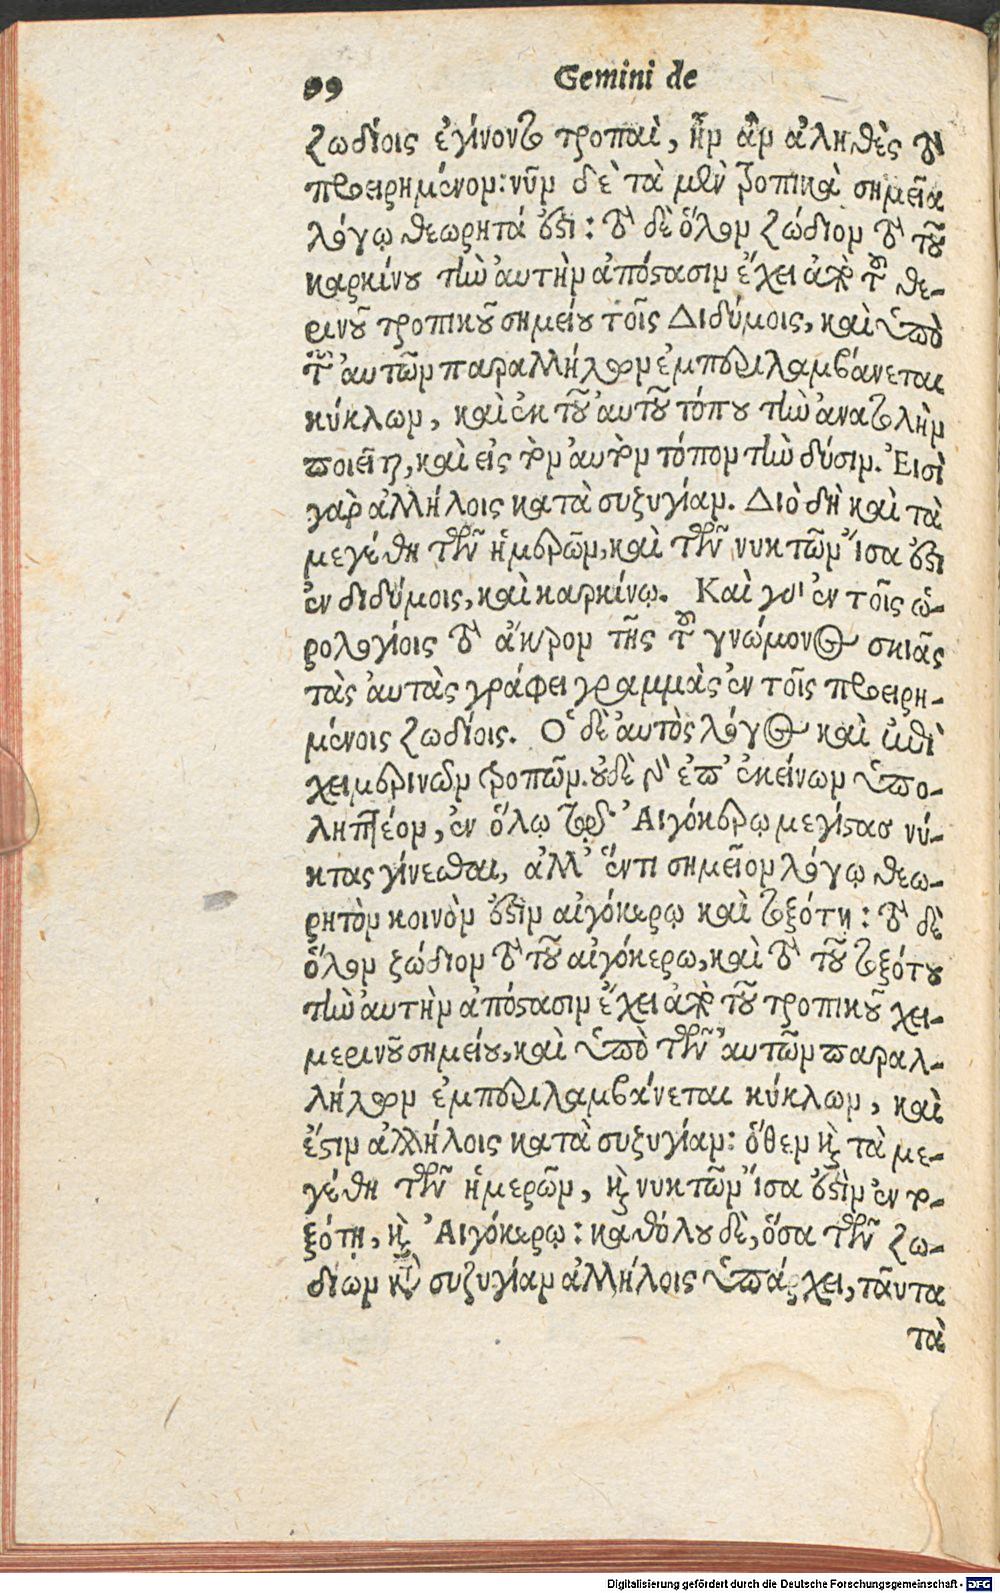 99 Gemini de
ζωδίοις ἐγίνοντο τροπαὶ, ἦν ἂν ἀληθὲς τὸ
προειρημένον: νῦν δὲ τὰ μὲν τροπικὰ σημεῖα
λόγῳ θεωρητά ἐστι: τὸ δὲ ὅλον ζώδιον τὸ τοῦ
καρκίνου τὴν αὐτὴν ἀπόστασιν ἔχει ἀπὸ τοῦ θε-
ρινοῦ τροπικοῦ σημείου τοῖς Διδύμοις, καὶ ὑπὸ
τῶν αὐτῶν παραλλήλων ἐμπεριλαμβάνεται
κύκλων, καὶ ἐκ τοῦ αὐτοῦ τόπου τὴν ἀνατολὴν
ποιεῖται, καὶ εἰς τὸν αὐτὸν τόπον τὴν δύσιν. Ἐισὶ
γὰρ ἀλλήλοις κατὰ συζυγίαν. Διὸ δὴ καὶ τὰ
μεγέθη τῶν ἡμερῶν, καὶ τῶν νυκτῶν ἴσα ἐστι
ἐν διδύμοις, καὶ καρκίνῳ. Καὶ γὰρ ἐν τοῖς ὡ-
ρολογίοις τὸ ἄκρον τῆς τοῦ γνώμονος σκιᾶς
τὰς αὐτὰς γράφει γραμμὰς ἐν τοῖς προειρη-
μένοις ζωδίοις. Ὁ δὲ αὐτὸς λόγος καὶ ἐπὶ
χειμερινῶν τροπῶν. οὐδὲ γὰρ ἐπ' ἐκείνων ὑπο-
ληπτέον, ἐν ὅλῳ τῷ Αἰγόκερῳ μεγίστας νύ-
κτας γίνεσθαι, ἀλλ' ἕν τι σημεῖον λόγῳ θεω-
ρητὸν κοινὸν ἐστὶν αἰγόκερῳ καὶ τοξότῃ: τὸ δὲ
ὅλον ζώδιον τὸ τοῦ αἰγόκερω, καὶ τὸ τοῦ τοξότου
τὴν αὐτὴν ἀπόστασιν ἔχει ἀπὸ τοῦ τροπικοῦ χει-
μερινοῦ σημείου, καὶ ὑπὸ τῶν αὐτῶν παραλ-
λήλων ἐμπεριλαμβάνεται κύκλων, καὶ
ἔστιν ἀλλήλοις κατὰ συζυγίαν: ὅθεν καὶ τὰ με-
γέθη τῶν ἡμερῶν, καὶ νυκτῶν ἴσα ἐστὶν ἐν το-
ξότῃ, καὶ Αἰγόκερῳ: καθόλου δὲ, ὅσα τῶν ζω-
δίων κατὰ συζυγίαν ἀλλήλοις ὑπάρχει, ταῦτα
τὰ
Digitalisierung gefördert durch die Deutsche Forschungsgemeinschaft - DFG